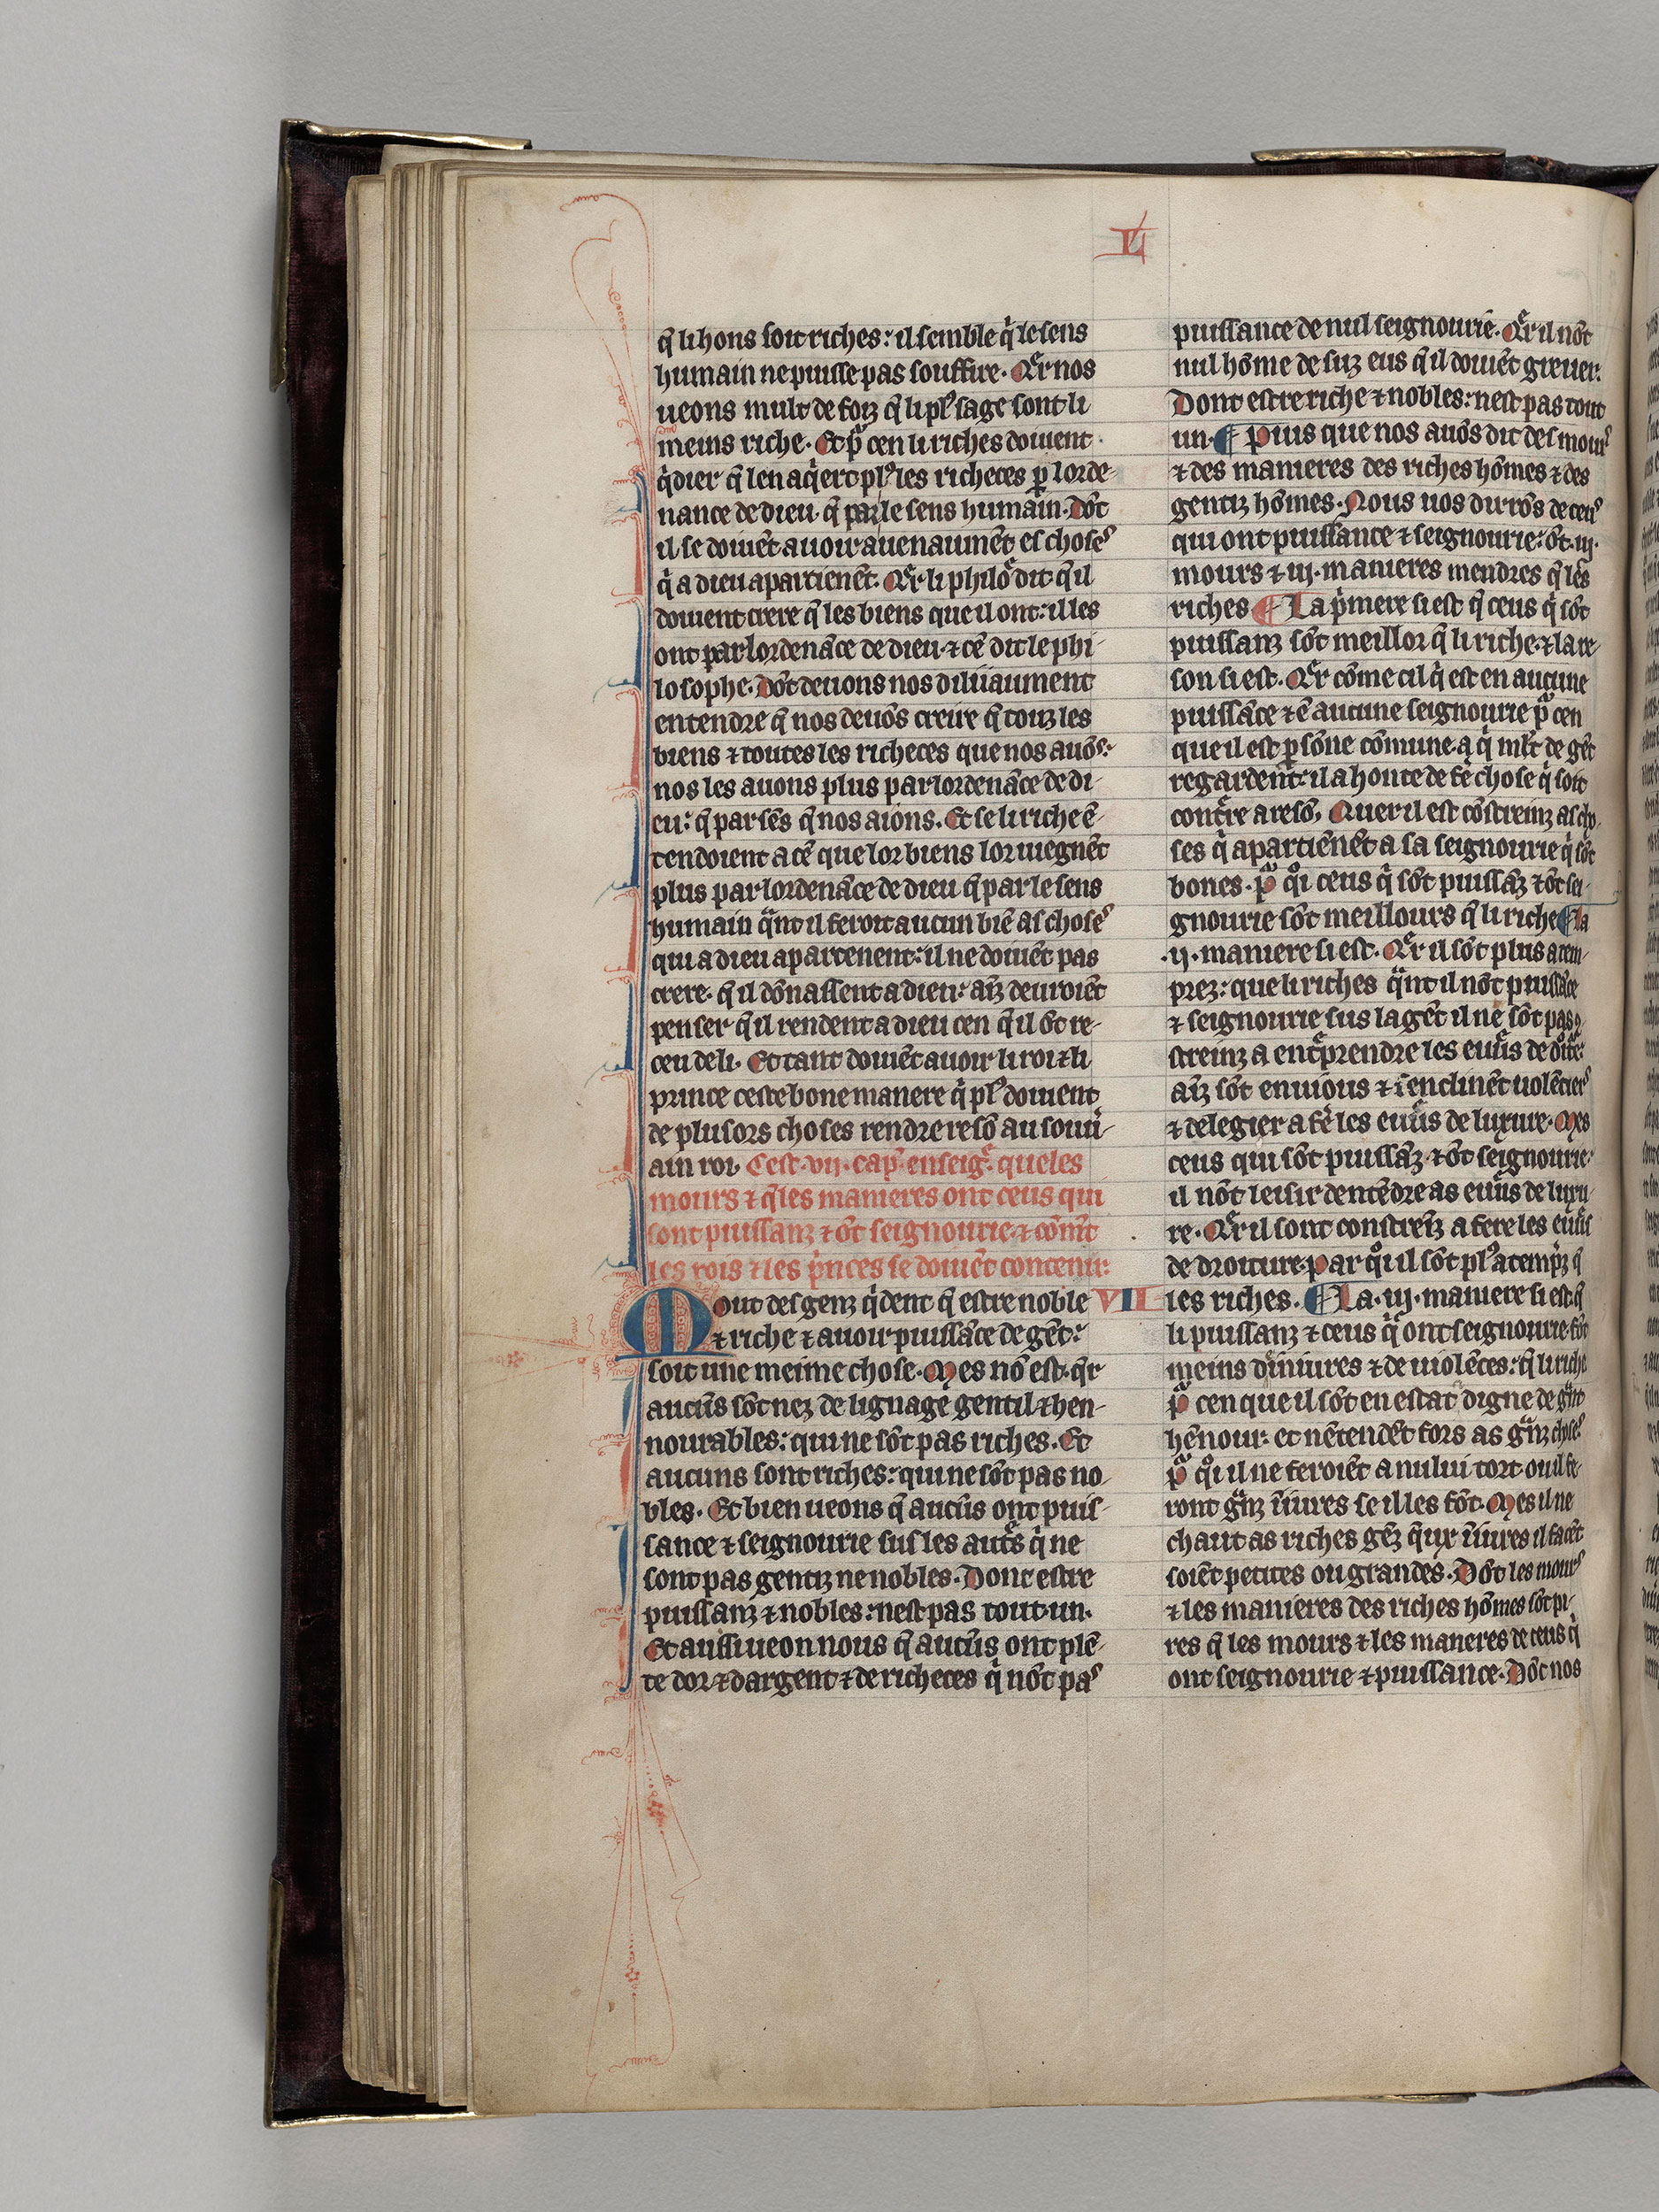 L
q̄ li hons soit riches: il semble q̇ le sens
humain ne puisse pas souffire. Q̄r nos
ueons mult de foiz q̄ li plꝰ sage sont li
meins riche. Et pͣ cen li riches doiuent
q̇dier q̄ len aq̇ert plꝰ les richeces ꝑ lorde-
nance de dieu. q̄ par le sens humain. Dōt
il se doiuēt auoir auenaumēt es choseˢ
q̇ a dieu apartienēt. Q̄r li philo̾ dit q̄ il
doiuent crere q̄ les biens que il ont: il les
ont par lordenāce de dieu. ⁊ cē dit le phi-
losophe. Dōt deuons nos diliiaument
entendre q̄ nos deuōs creire q̄ touz les
biens ⁊ toutes les richeces que nos auōs:
nos les auons plus par lordenāce de di-
eu: q̄ par sēs q̄ nos aions. Et se li riche ē-
tendoient a cē que lor biens lor uiegnēt
plus par lordenāce de dieu q̄ par le sens
humain qͣnt il feroit aucun biē as choseˢ
qui a dieu apartenent: il ne doiuēt pas
crere. q̄ il dōnassent a dieu: aīz deuroiēt
penser q̄ il rendent a dieu cen q̄ il ōt re-
ceu de li. Et tant doiuēt auoir li roi ⁊ li
prince ceste bone manere q̇ plꝰ doiuent
de plusors choses rendre resō au souu̾-
ain roi. Cest .vii. cap̾. enseig̾. queles
mours ⁊ q̄les manieres ont ceus qui
sont puissanz ⁊ ōt seignourie. ⁊ cōmēt
les rois ⁊ les ṗnces se doiuēt contenir.
VII
Mout des genz q̇dent q̄ estre noble
⁊ riche ⁊ auoir puissāce de gēt:
soit une meime chose. Mes nō est. q̄r
aucūs sōt nez de lignage gentil ⁊ hen-
nourables: qui ne sōt pas riches. Et
aucuns sont riches: qui ne sōt pas no-
bles. Et bien ueons q̄ aucūs ont puis-
sance ⁊ seignourie sus les aut̾s q̇ ne
sont pas gentiz ne nobles. Donc estre
puissanz ⁊ nobles: nest pas tout un.
Et aussi ueon nous q̄ aucūs ont plē-
te dor ⁊ dargent ⁊ de richeces q̇ nōt paˢ
puissance de nul seignourie. Q̄r il nōt
nul hōme de suz eus q̄ il doiuēt greuer.
Donc estre riche ⁊ nobles: nest pas tout
un. ¶ Puis que nos auōs dit des mourˢ
⁊ des manieres des riches hōmes ⁊ des
gentiz hōmes. Nous uos dirrōs de ceuˢ
qui ont puissance ⁊ seignourie: ōt .iij.
mours ⁊ iij. manieres mendres q̄ les
riches ¶ La ṗmere si est q̄ ceus q̇ sōt
puissanz sōt meillor q̄ li riche. ⁊ la re-
son si est. Q̄r cōme cil q̇ est en aucune
puissāce ⁊ ē aucune seignourie pͣ cen
que il est ꝑsōne cōmune. a q̇ ml̄t de gēt
regardent: il a honte de fē chose q̇ soit
contͣre a resō. Quer il est cōstreinz as cho-
ses q̇ apartienēt a sa seignourie q̇ sōt
bones. pͣ qͦi ceus q̇ sōt puissāz ⁊ ōt sei-
gnourie sōt meillours q̄ li riche ¶ la
.ij. maniere si est. Q̄r il sōt plus atem-
prez: que li riches qͣnt il nōt puissāce
⁊ seignourie sus la gēt il ne sōt pas 9-
streinz a ent̾prendre les euu̾s de dͦit̾e:
aīz sōt enuious ⁊ senclinēt uolētierˢ
⁊ de legier a fē les euu̾s de luxure. Mes
ceus qui sōt puissāz. ⁊ ōt seignourie:
il nōt leisir dentēdre as euu̾s de luxu-
re. Q̄r il sont constreīz a fere les euu̾s
de droiture. par qͦi il sōt plꝰ atempͣz q̄
les riches. ¶ La .iij. maniere si est q̄
li puissanz ⁊ ceus q̇ ont seignourie fōt
meins diniures ⁊ de uiolēces: q̄ li riche
pͣ cen que il sōt en estat digne de gͣnt
hēnour. et nētendēt fors as gͣnz choseˢ.
pͣ qͦi il ne feroiēt a nului tort. ou il fe-
ront gͣnz īiures se il les fōt. Mes il ne
chaut as riches gēz q̄ux īiures il facēt
soiēt petites ou grandes. Dōt les mourˢ
⁊ les manieres des riches hōmes sōt pi-
res q̄ les mours ⁊ les maneres de ceus q̇
ont seignourie ⁊ puissance. Dōt nos